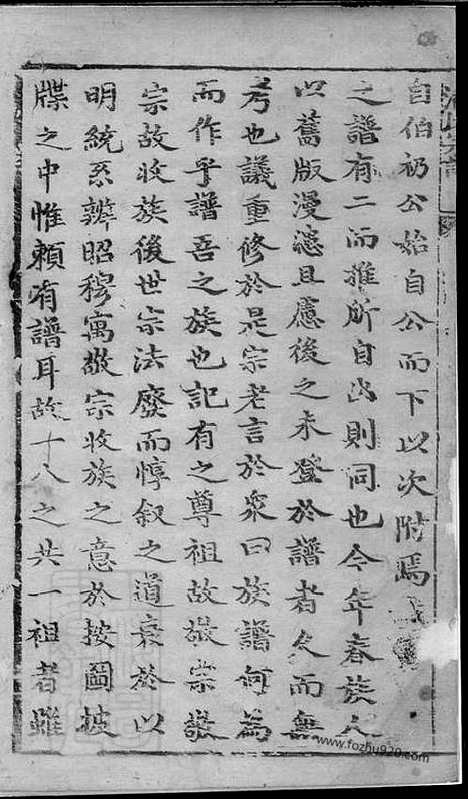 自伯礽公始自公而下以次附焉
之譜有二而推所自出則同也今年春族人
以舊版漫漶且慮後之未登於譜者久而無
考也議重修於是宗老言於衆曰族譜何為
而作乎譜吾之族也記有之尊祖故敬宗敬
宗故收族後世宗法廢而惇叙之道衰於以
明統系辨昭穆寓敬宗收族之意於按圖披
牒之中惟頼有譜耳故十八之共一祖者雖
www.fozhu920.com